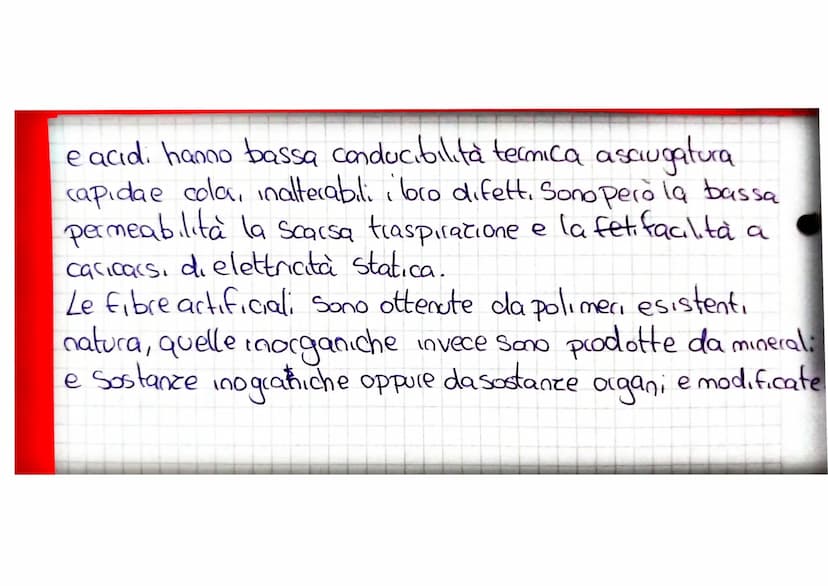 e acidi hanno bassa conducibilità termica asciugatura
rapida e cola, inalterabili i loro difetti Sono però la bassa
permeabilità la scarsa traspirazione e la facilità a
caricarsi di elettricità statica.
Le fibre artificiali sono ottenute da polimeri esistenti
natura, quelle inorganiche invece sono prodotte da minerali
e sostanze inograniche oppure da sostanze organi e modificate